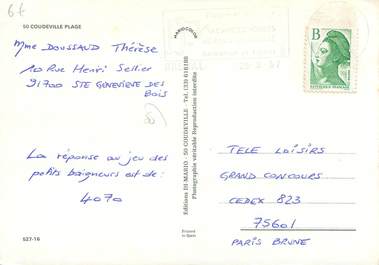 6f
50 COUDEVILLE PLAGE
Mme DOUSSAUD Thérèse
10 Rue Henri Sellier
91700 STE GENEVIEVE DES
BOIS
La réponse au jeu des
petits baigneurs est de:
4070
527-16
MARIOCOLOR
Editions DI-MARIO - 50 COUDEVILLE - Tel. (33) 616188
Photographie véritable Reproduction interdite
Printed
in Spain
B
REPUBLIQUE FRANÇAISE
TELE LOISIRS
GRAND CONCOURS
CEDEX 823
75601
PARIS BRUNE